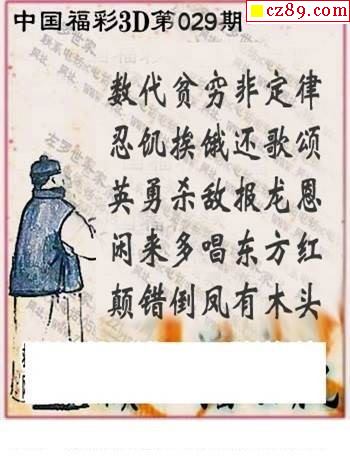 cz89.com
中国福彩3D第029期
数代贫穷非定律
忍饥挨饿还歌颂
英勇杀敌报龙恩
闲来多唱东方红
颠错倒凤有木头